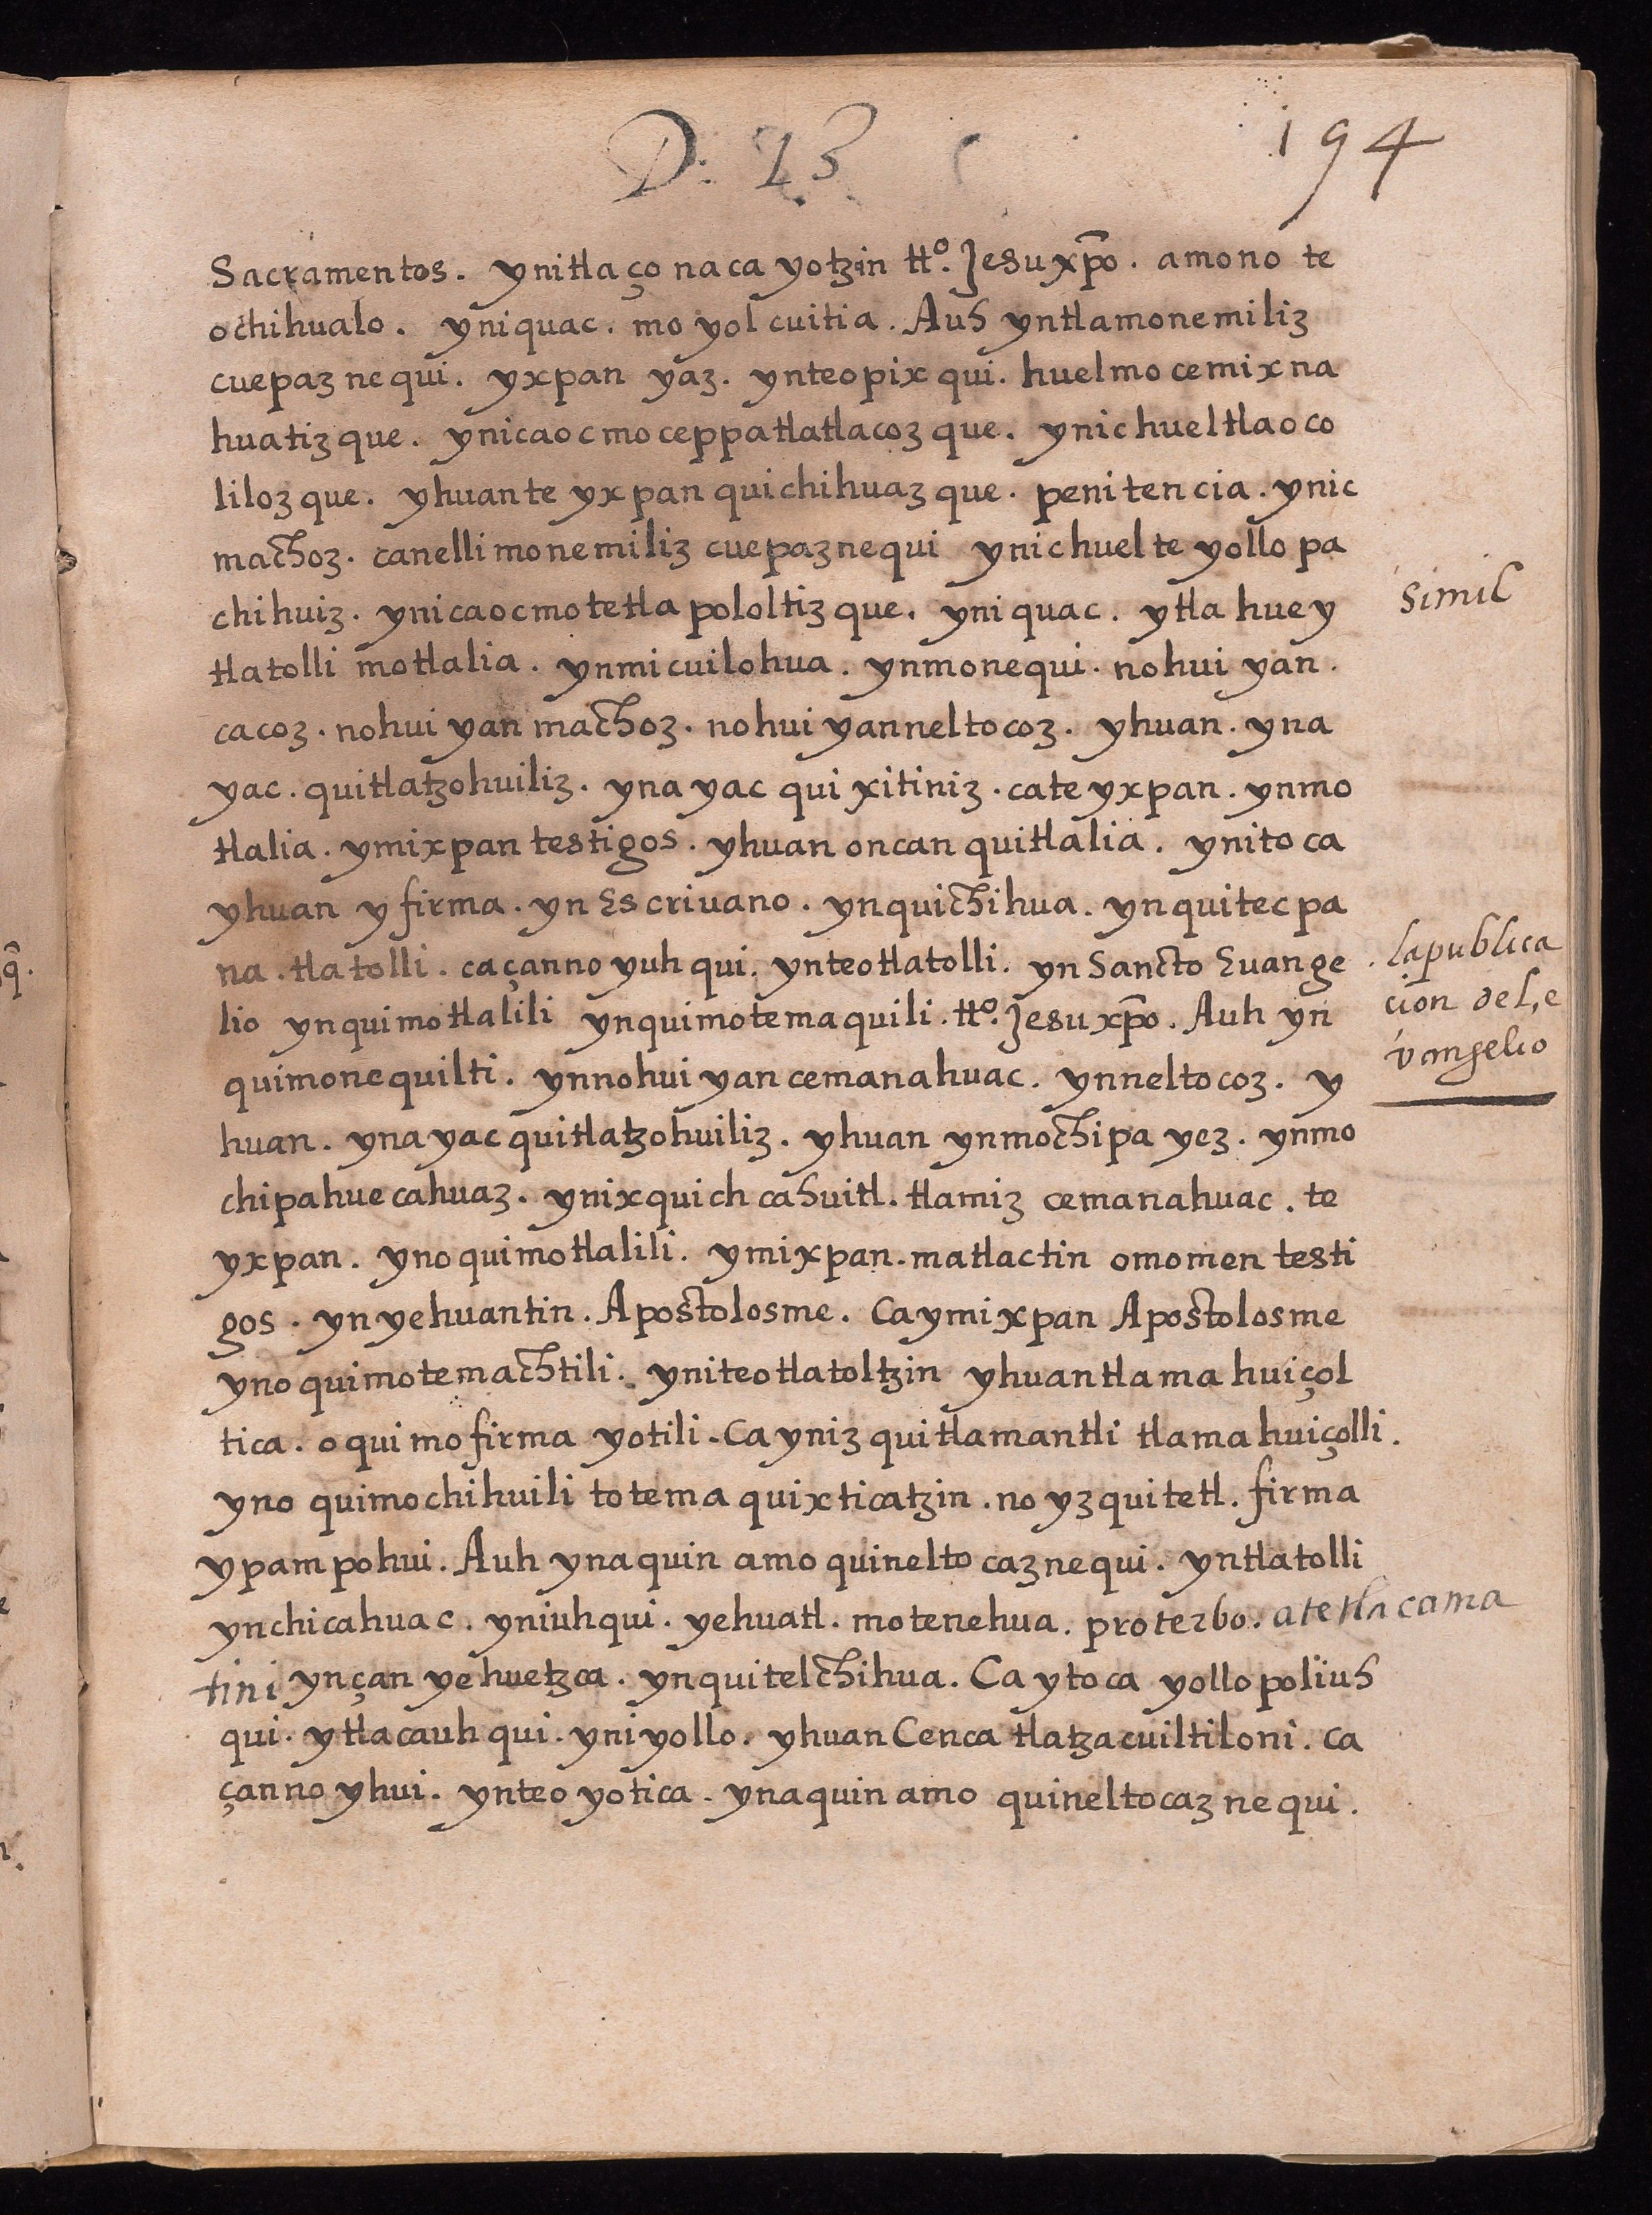 D. 23
194
Sacramentos. ynitlaço naca yotzin tto. Jesu xpo. amono te
ochihualo. yniquac. mo yol cuitia. Auh yntlamonemiliz
cuepaz nequi. yxpan yaz. ynteopix qui. huelmo cemix na
huatiz que. ynicaoc mo ceppatlatlacoz que. ynic hueltlaoco
liloz que. yhuan te yxpan quichihuaz que. penitencia. ynic
machoz. canelli monemiliz cuepaznequi ynic huel te yollo pa
chihuiz. ynicaocmo tetla pololtiz que. yni quac. ytla huey
simil
tlatolli motlalia. ynmicuilohua. ynmonequi. nohui yan.
cacoz. nohui yan machoz. nohui yanneltocoz. yhuan. yna
yac. quitlatzohuiliz. yna yac qui xitiniz. cate yxpan. ynmo
tlalia. ymixpan testigos. yhuan oncan quitlalia. ynito ca
yhuan y firma. yn Escriuano. ynquichihua. ynquitecpa
na. tlatolli. caçanno yuh qui. ynteotlatolli. yn Sancto Euange
lio ynquimotlalili ynquimotemaquili. tto. Jesu xpo. Auh yn
quimonequilti. ynnohui yan cemanahuac. ynneltocoz. y
la publica
cion del, e
vangelio
huan. yna yac quitlatzohuiliz. yhuan ynmochipa yez. ynmo
chipahue cahuaz. ynixquich cahuitl. tlamiz cemanahuac. te
yxpan. yno quimotlalili. ymixpan. matlactin omomen testi
gos. yn yehuantin. Apostolosme. Ca ymixpan Apostolosme
yno quimotemachtili. yniteotlatoltzin yhuantlama huiçol
tica. o qui mo firma yotili. Ca yniz quitlamantli tlama huiçolli.
yno quimochihuili totema quixticatzin. no yz quitetl. firma
ypam pohui. Auh ynaquin amo quinelto caznequi. yntlatolli
ynchicahuac. yniuhqui. yehuatl. motenehua. proterbo. atetlacama
tini ynçan yehuetzca. ynquitelchihua. Ca ytoca yollo poliuh
qui. ytlacauh qui. yni yollo. yhuan Cenca tlatzacuiltiloni. ca
çanno yhui. ynteo yotica. ynaquin amo quineltocaz ne qui.